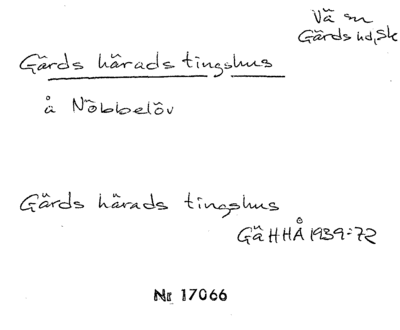 Vä sn
Gärds hd, Sk
Gärds härads tingshus
å Nöbbelöv
Gärds härads tingshus
Gä HHÅ 1939:72
Nr 17066